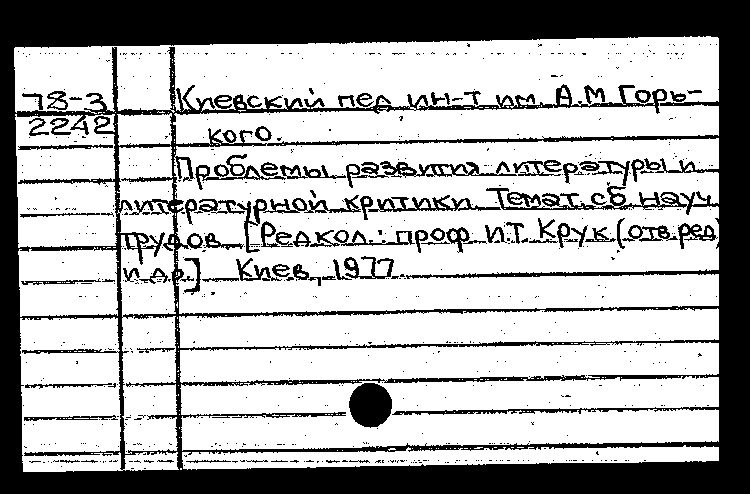 78-3 Киевский пед ин-т им. А.М Горь-
2242 кого.
Проблемы развития литературы и
литературной критики. Темат. сб науч
трудов. [Редкол.: проф И.Т. Крук (отв.ред)
и др.] Киев, 1977.